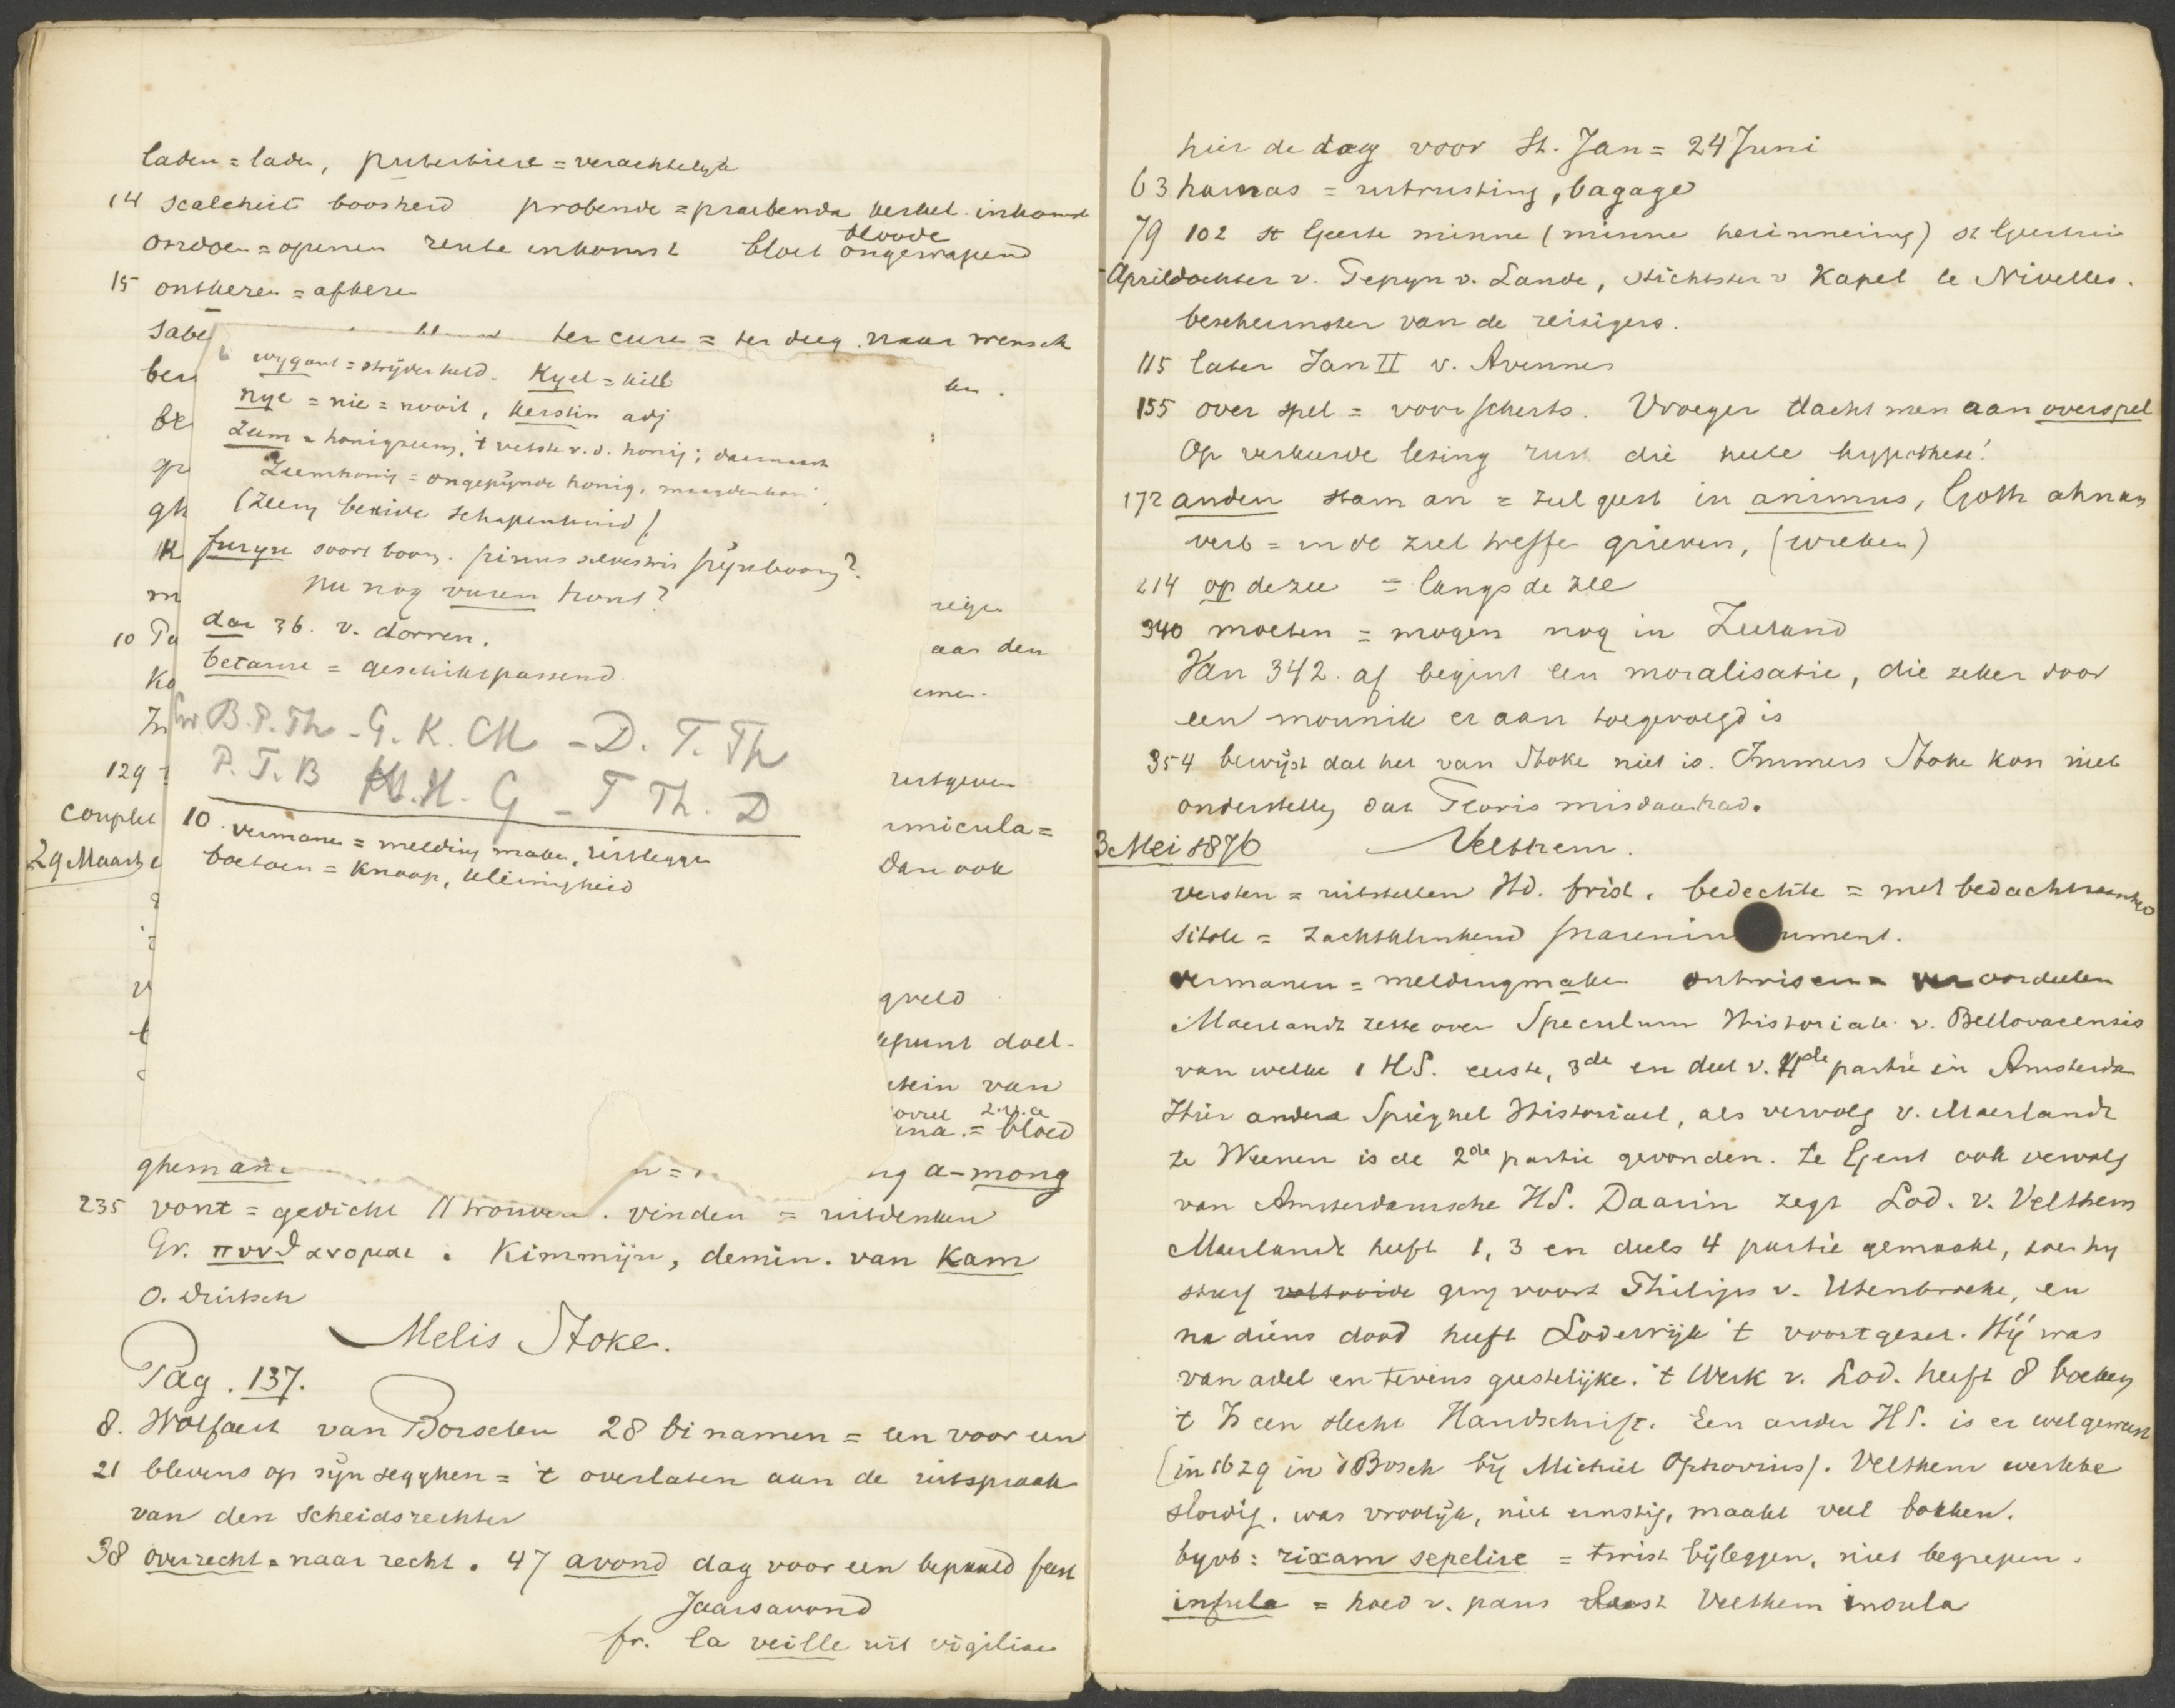 laden = lade, putertiere = verachtelyk
14 scalcheit boosheid probende = praebenda kerkel. inkomst
ondoen = openen rente inkomst bloet bloode ongewapend
15 ontkeren = afkeren
sabe ter cure = ter deeg naar wensch
wygant = strijder held. Kyel = kiel
ber
nye = nie = nooit, kerstin adj
be
zeem = honigzeem, 't vetste v.d. honig; daarnaast
gr
Zeemhonig = ongepijnde honig, maagdenhoni
gh (zeem bereide schapenhuid)
furyn soort boom. pinus silvestris pijnboom?
nu nog vuren hout?
m reige
10 Pa dar 36. v. dorren. aan den
betame = geschikt passend
Ko
B. P. Th - G. K. M - D. T. Th
P. T. B H. G - T Th. D
129 uitgeven
couplet umicula =
10. vermanen = melding maken, uitleggen
29 Maart dan ook
botoen = knoop, kleinigheid
qveld
epunt doel-
stein van
ovrel z.v.a
ena. = bloed
ghemane ng a-mong
235 vont = gedicht // trouver. vinden = uitdenken
Gr. πυνθανομαι. Kimmijn, demin. van Kam
O. Duitsch
Melis Stoke.
Pag. 137.
8. Wolfaert van Borselen 28 bi namen = een voor een
21 blevens op sijn segghen = 't overlaten aan de uitspraak
van den scheidsrechter
38 overrecht = naar recht. 47 avond dag voor een bepaald feest
Jaarsavond
fr. la veille uit vigiliae
hier de dag voor St. Jan = 24 Juni
63 harnas = uitrusting, bagage
79 102 st Geerte minne (minne herinnering) st Geertrui
April dochter v. Pepyn v. Lande, stichtster v Kapel te Nivelles.
beschermster van de reizigers.
115 later Jan II v. Avennes
155 over spel = voor scherts. Vroeger dacht men aan overspel
Op verkeerde lezing rust die heele hypothese!
172 anden stam an = ziel geest in animus, Goth ahnan
verb = in de ziel treffen grieven, (wreken)
214 op de zee = langs de zee
340 moeten = mogen nog in Zeeland
Van 342. af begint een moralisatie, die zeker door
een monnik er aan toegevoegd is
354 bewijst dat het van Stoke niet is. Immers Stoke kon niet
onderstellen dat Floris misdaan had.
3 Mei 1876 Velthem.
versten = uitstellen Hd. frist. bedechte = met bedachtzaamheid
sitole = zachtklinkend snareninstrument.
vermanen = melding maken ontwisen = veroordeelen
Maerlandt zette over Speculum Historiale v. Bellovacensis
van welke 1 HS. eerste, 3de en deel v. 4de partie in Amsterdam
Hier andere Spieghel Historiael, als vervolg v. Maerlandt
te Weenen is de 2de partie gevonden. te Gent ook vervolg
van Amsterdamsche HS. Daarin zegt Lod. v. Velthem
Maerlandt heeft 1, 3 en deels 4 partie gemaakt, toen hy
stierf voltooide ging voort Philips v. Utenbroeke, en
na diens dood heeft Lodewijk 't voortgezet. Hij was
van adel en tevens geestelijke. 't Werk v. Lod. heeft 8 boeken
't Is een slecht Handschrift. Een ander HS. is er wel geweest
(in 1629 in 's Bosch bij Michiel Ophovius). Velthem werkte
slordig. was vroolijk, niet ernstig, maakt veel bokken.
byvb: rixam sepelire = twist bijleggen, niet begrepen.
infula = hoed v. paus leest Velthem insula